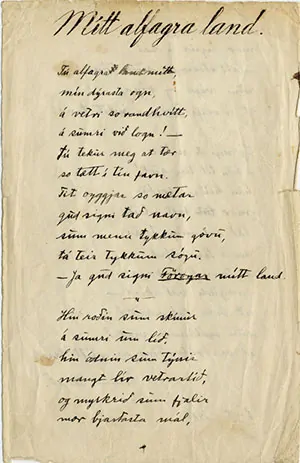 Mitt alfagra land.
Tú alfagra land mítt,
mín dýrasta ogn,
á vetri so randhvítt,
á sumri við logn! —
tú tekur meg at tær
so tætt í tín favn.
Tit oyggjar so mætar
gud signi tað navn,
sum menn tykkum góvu,
tá teir tykkum sógu.
— Ja gud signi Föroyar mítt land.
Hin roðin sum skínur
á sumri um líð,
hin ódnin sum týnir
mangt lív vetrartíð,
og myrkrið sum fjalir
mær bjartasta mál,